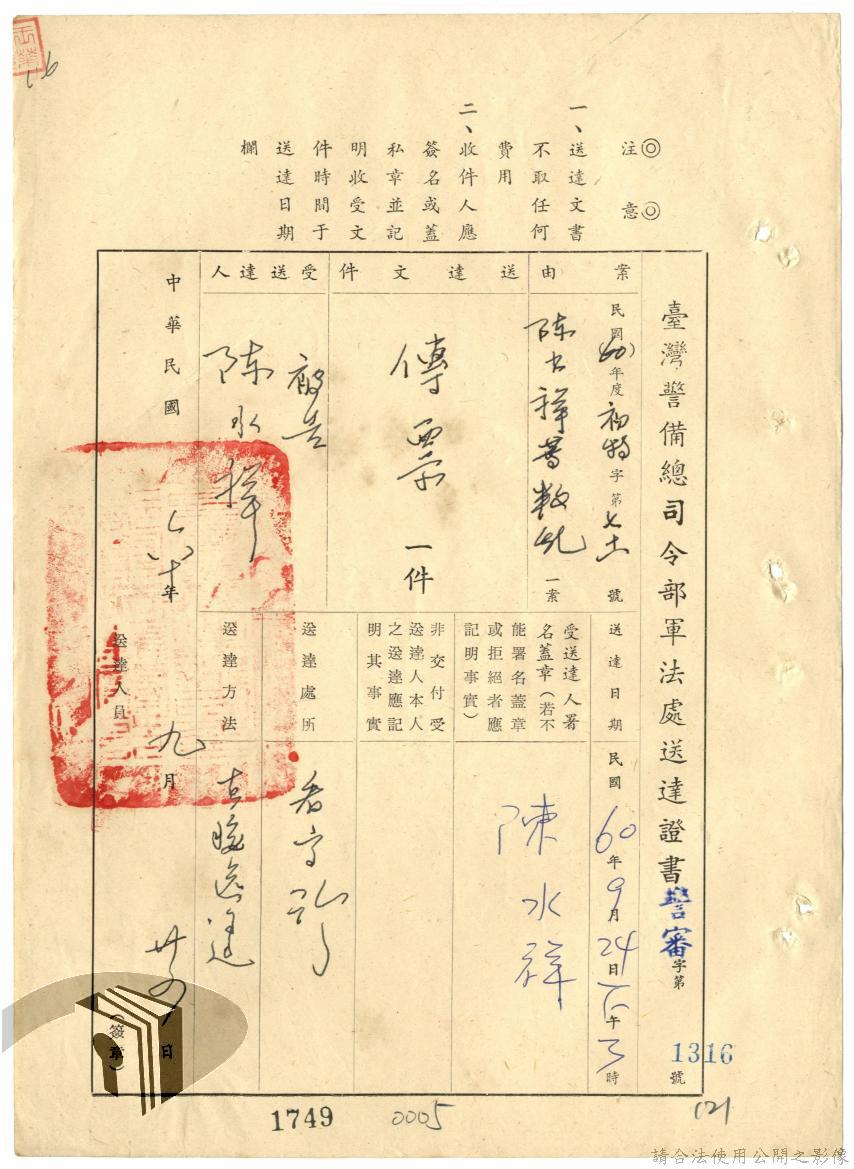 ◎注意◎
一、送達文書
不取任何
費用
二、收件人應
簽名或蓋
私章並記
明收受文
件時間于
送達日期
欄
臺灣警備總司令部軍法處送達證書警審字第1316號
案由
民國(60)年度初特字第七十一號
陳水祥等叛亂一案
送達文件
傳票一件
受送達人
被告
陳水祥
送達日期
民國60年9月24日下午3時
受送達人署
名蓋章(若不
能署名蓋章
或拒絕者應
記明事實)
陳水祥
非交付受
送達人本人
之送達應記
明其事實
送達處所
看守所
送達方法
直接送達
中華民國六十年九月廿四日
送達人員
(簽章)
1749
0005
(2)
請合法使用公開之影像